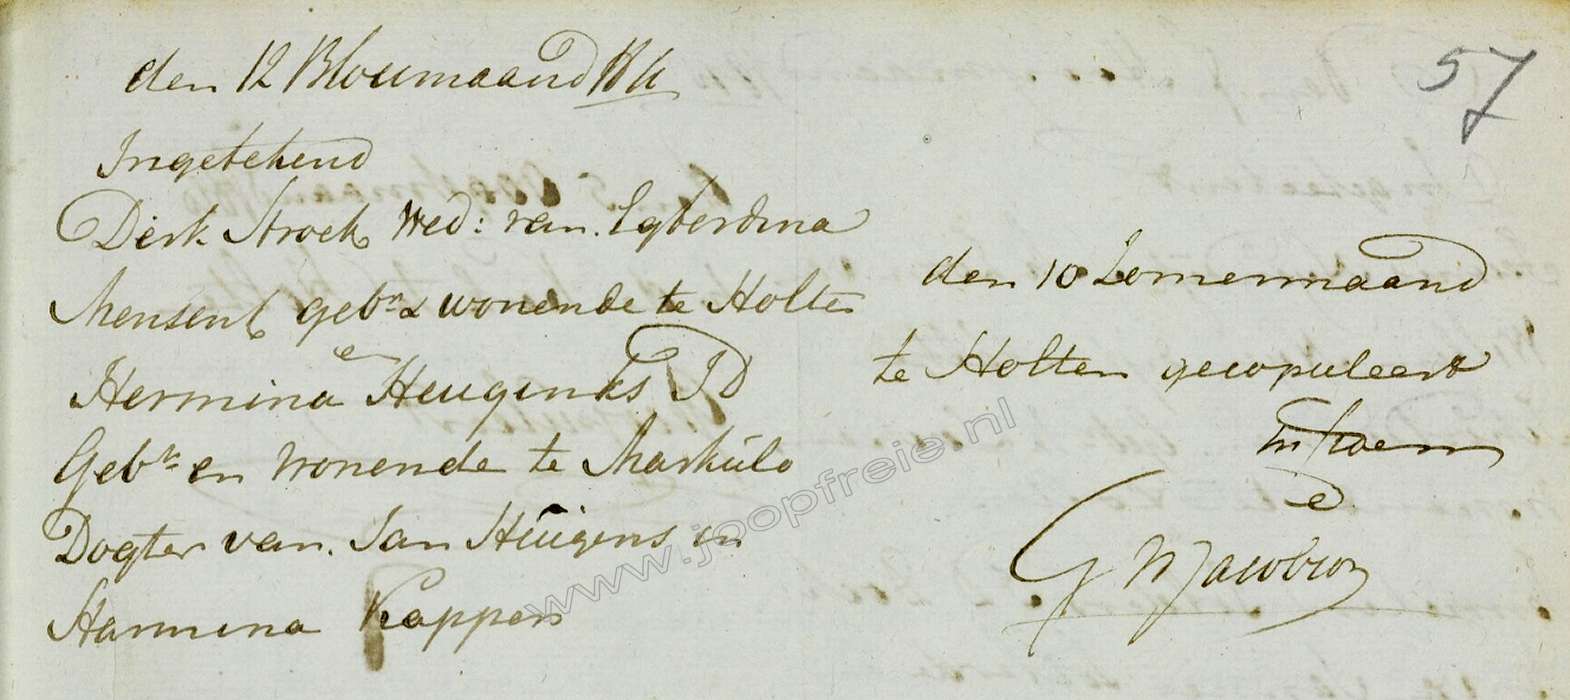 57
den 12 Bloeimaand 1811
Ingetekend
Derk Stroek Wed: van Egberdina
Mensent gebr & wonende te Holten
en
Hermina Heuginks J D
Gebr en wonende te Markülo
Dogter van Jan Hüigens en
Harmina Kappers
den 10 Zomermaand
te Holten gecopuleert
G W Jacobson
www.joopfreie.nl